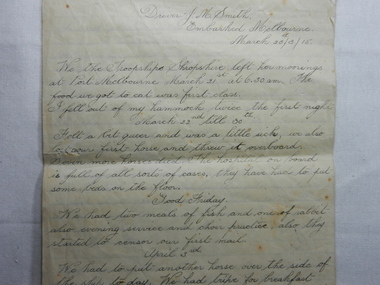 Driver J. M. Smith
Embarked Melbourne
March 20/3/16
We the Troopships Shropshire left her moorings
at Port Melbourne March 21st at 6.30am. The
food we got to eat was first class.
I fell out of my hammock twice the first night
March 22nd till 30th
Felt a bit queer and was a little sick, we also
our first horse and threw it overboard.
horses died The hospital on board
is full of all sorts of cases, they have had to put
some beds on the floor.
Good Friday.
We had two meals of fish and one of salad
also evening service and choir practice, also they
started to censor our first mail
April 3rd
We had to put another horse over the side of
the ship to day. We had tripe for breakfast